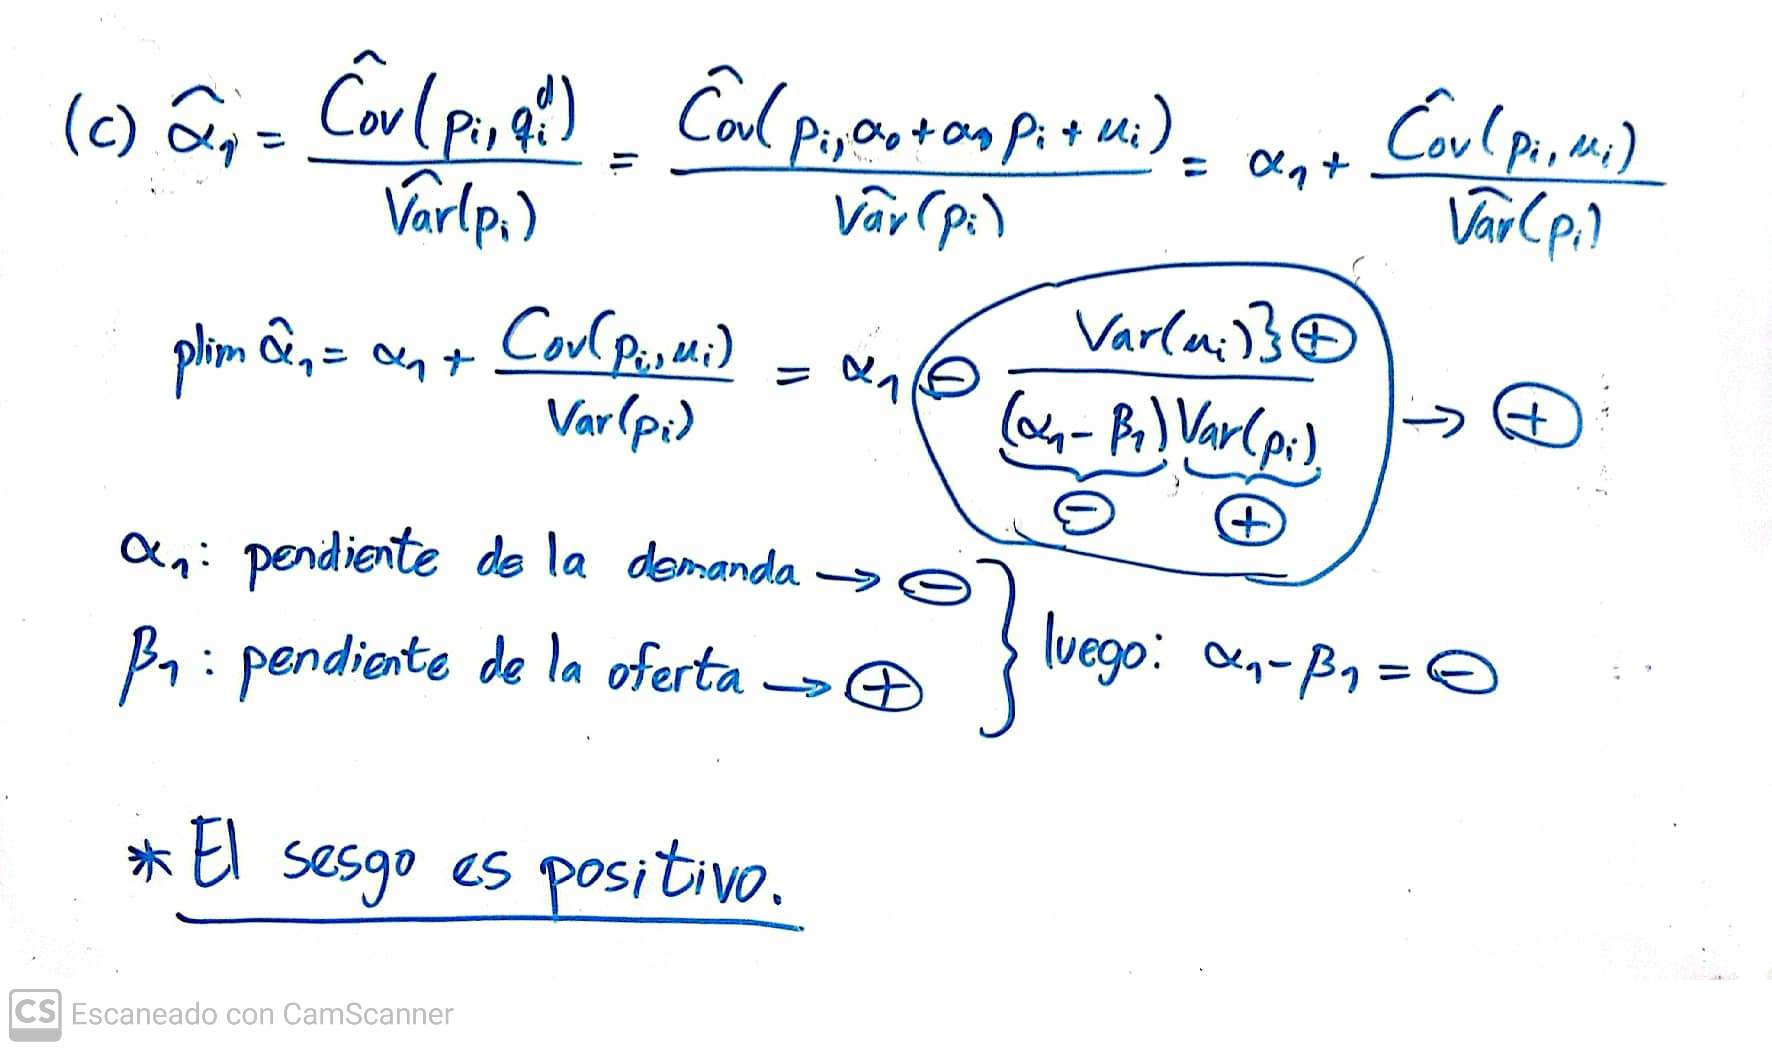 (c) α̂₁ = Ĉov(pᵢ, qᵢᵈ) / V̂ar(pᵢ) = Ĉov(pᵢ, α₀ + α₁ pᵢ + uᵢ) / V̂ar(pᵢ) = α₁ + Ĉov(pᵢ, uᵢ) / V̂ar(pᵢ)
plim α̂₁ = α₁ + Cov(pᵢ, uᵢ) / Var(pᵢ) = α₁ ⊖ Var(uᵢ)}⊕ / (α₁ - β₁) Var(pᵢ) → ⊕
⊖ ⊕
α₁: pendiente de la demanda → ⊖
β₁: pendiente de la oferta → ⊕
} luego: α₁ - β₁ = ⊖
* El sesgo es positivo.
CS Escaneado con CamScanner